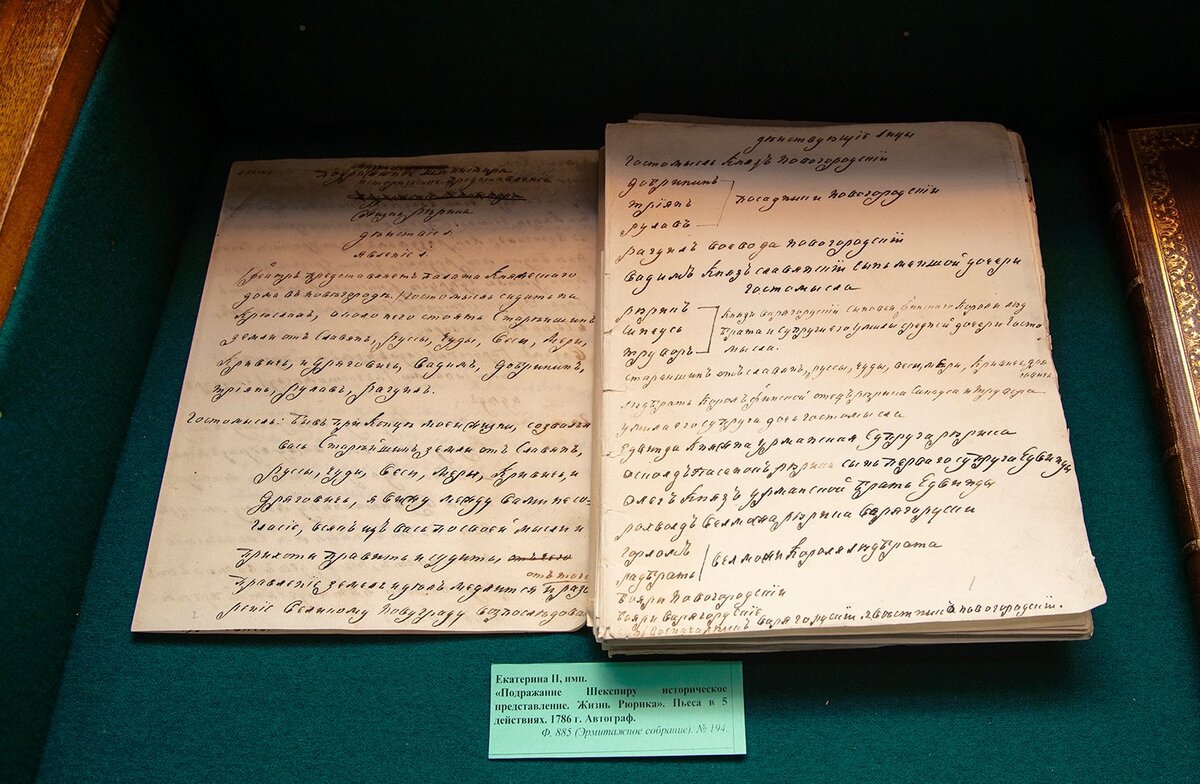 Подражание Шакеспира
историческое представление
жизнь Рюрика
действiе 1.
явленiе 1.
Театръ представляетъ палата Княжескаго
дома въ новѣгороде. Гостомыслъ сидитъ на
креслахъ, около него стоятъ Старѣйшинъ
земли отъ Славянъ, Руссы, Чуды, Веси, Мери,
Кривичь, и Дряговичь, Вадимъ, Добрынинъ,
Трiянъ, Рулавъ, Рагуилъ.
Гостомыслъ. бывъ при Концѣ моей жизни, созвалъ
васъ Старѣйшинъ земли отъ Славянъ,
Руссы, Чуды, Веси, Меры, Кривичь, и
Дряговичь, я вижу между вами несо-
гласiе, всякъ изъ васъ по своей мысли и
прихоти править и судить,
отъ того
правленiе земель и дѣлъ медлится и разо-
ренiе Великому Новуграду
дѣйствующiе лицы
Гостомыслъ Князь Новогородскiй
Добрынинъ
Трiянъ
Рулавъ
посадники Новогородскiи
Рагуилъ воевода Новогородскiй
Вадимъ Князь славянскiй сынъ меншой дочери
Гостомысла
Рюрикъ
Синеусъ
Труворъ
Князья варягорускiи сыновья финскаго Короля Люд
брата и супруги его Умилы средней дочери Госто
мысла.
старѣйшинъ отъ славянъ, руссы, чуды, веси, мѣри, Кривичь, дря
Людбратъ Король финской отецъ Рюрика Синеуса и Трувора
Умила его супруга дочь Гостомысла
Едвинда Княжна Урманская Супруга Рюрика
Оскольдъ пасынокъ Рюрика сынъ перваго супруга Едвинды
Олегъ Князь Урманской братъ Едвинды
Рохвольдъ велможа Рюрика варягоруссии
Горлолъ
Радбратъ
велможи Короля Людбрата
бояри Новогородскiи
бояри варягорускiе
Екатерина II, имп.
«Подражание Шекспиру историческое
представление. Жизнь Рюрика». Пьеса в 5
действиях. 1786 г. Автограф.
Ф. 885 (Эрмитажное собрание). № 194.